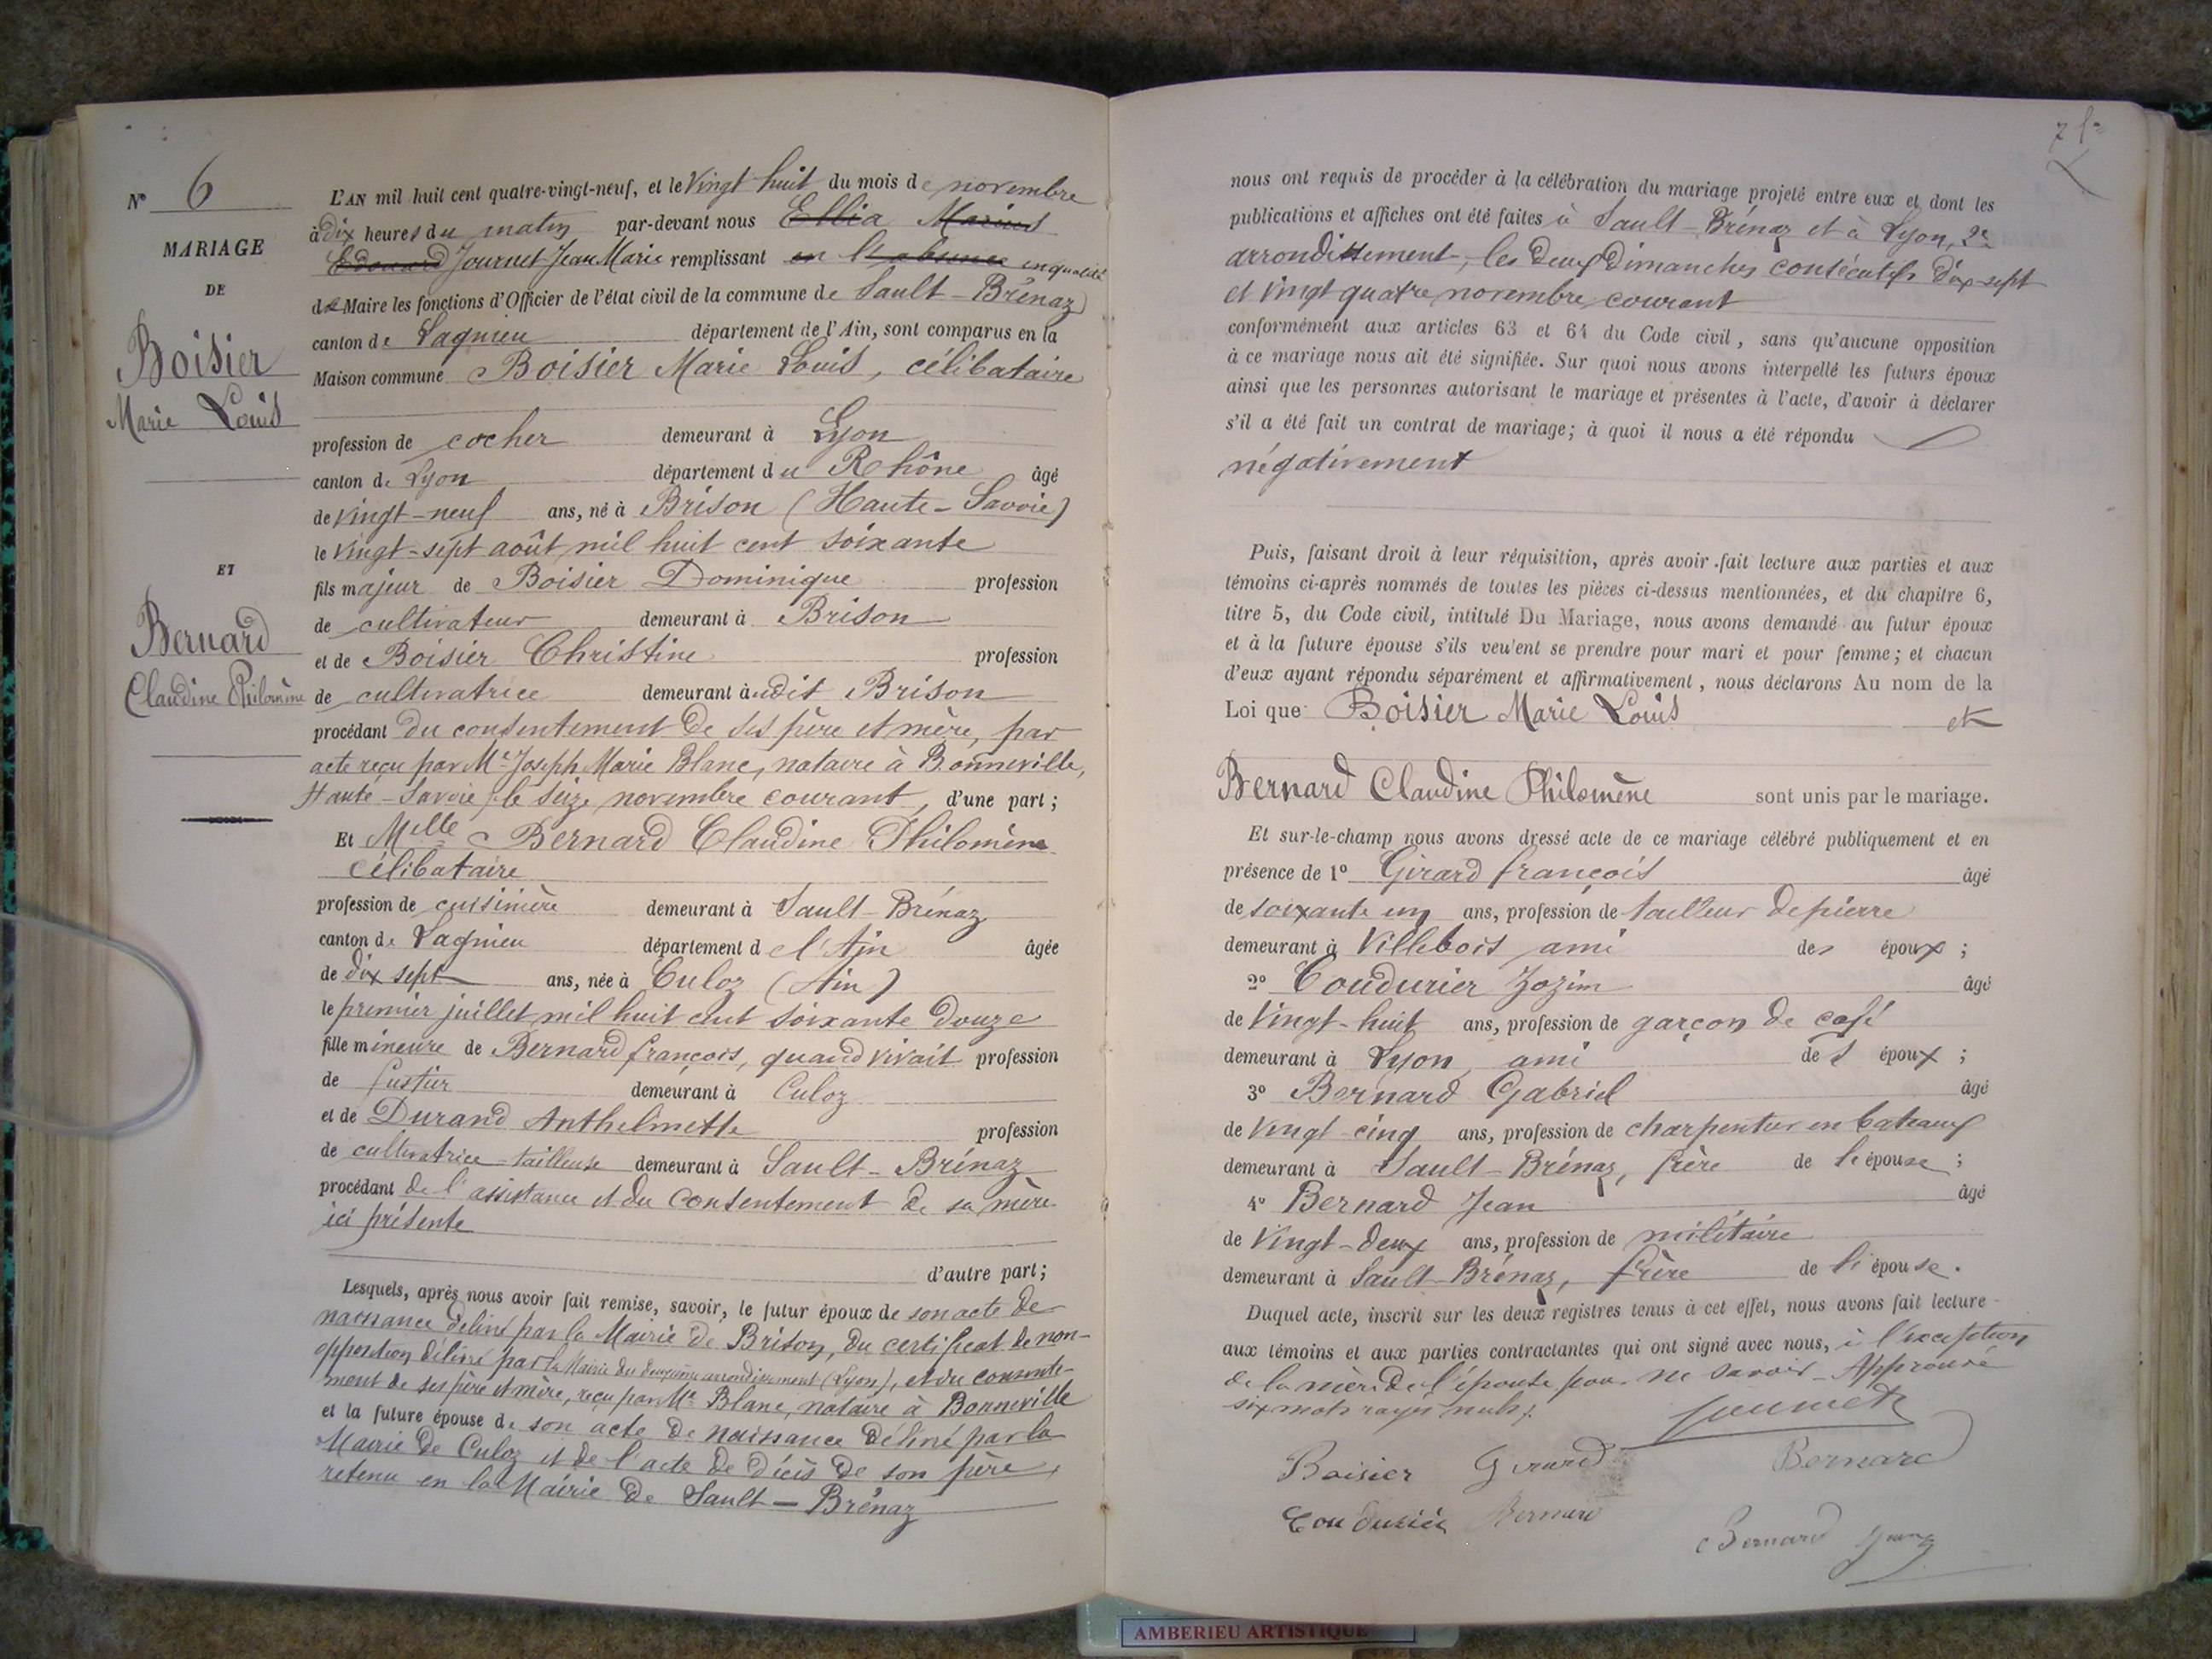 N° 6
MARIAGE
DE
Boisier
Marie Louis
ET
Bernard
Claudine Philomène
L'AN mil huit cent quatre-vingt-neuf, et le Vingt huit du mois de novembre
à dix heures du matin par-devant nous Ellia Marius
Edouard Journet Jean Marie remplissant en l'absence en qualité
de Maire les fonctions d'Officier de l'état civil de la commune de Sault-Brénaz
canton de Lagnieu département de l'Ain, sont comparus en la
Maison commune Boisier Marie Louis, célibataire
profession de cocher demeurant à Lyon
canton de Lyon département du Rhône âgé
de vingt-neuf ans, né à Brison (Haute-Savoie)
le vingt-sept août mil huit cent soixante
fils majeur de Boisier Dominique profession
de cultivateur demeurant à Brison
et de Boisier Christine profession
de cultivatrice demeurant àudit Brison
procédant du consentement de ses père et mère, par
acte reçu par Me Joseph Marie Blanc, notaire à Bonneville,
Haute-Savoie, le seize novembre courant, d'une part ;
Et Melle Bernard Claudine Philomène
célibataire
profession de cuisinière demeurant à Sault-Brénaz
canton de Lagnieu département de l'Ain âgée
de dix sept ans, née à Culoz (Ain)
le premier juillet mil huit cent soixante douze
fille mineure de Bernard françois, quand vivait profession
de fustier demeurant à Culoz
et de Durand Anthelmette profession
de cultivatrice-tailleuse demeurant à Sault-Brénaz
procédant de l'assistance et du consentement de sa mère
ici présente
d'autre part ;
Lesquels, après nous avoir fait remise, savoir, le futur époux de son acte de
naissance délivré par la Mairie de Brison, du certificat de non-
opposition délivré par la Mairie du deuxième arrondissement (Lyon), et du consente-
ment de ses père et mère, reçu par Me Blanc, notaire à Bonneville
et la future épouse de son acte de naissance délivré par la
Mairie de Culoz et de l'acte de décès de son père,
retenu en la Mairie de Sault-Brénaz
nous ont requis de procéder à la célébration du mariage projeté entre eux et dont les
publications et affiches ont été faites à Sault-Brénaz et à Lyon, 2e
arrondissement, les deux Dimanches consécutifs dix-sept
et vingt quatre novembre courant
conformément aux articles 63 et 64 du Code civil, sans qu'aucune opposition
à ce mariage nous ait été signifiée. Sur quoi nous avons interpellé les futurs époux
ainsi que les personnes autorisant le mariage et présentes à l'acte, d'avoir à déclarer
s'il a été fait un contrat de mariage; à quoi il nous a été répondu
négativement
Puis, faisant droit à leur réquisition, après avoir fait lecture aux parties et aux
témoins ci-après nommés de toutes les pièces ci-dessus mentionnées, et du chapitre 6,
titre 5, du Code civil, intitulé Du Mariage, nous avons demandé au futur époux
et à la future épouse s'ils veulent se prendre pour mari et pour femme; et chacun
d'eux ayant répondu séparément et affirmativement, nous déclarons Au nom de la
Loi que Boisier Marie Louis et
Bernard Claudine Philomène sont unis par le mariage.
Et sur-le-champ nous avons dressé acte de ce mariage célébré publiquement et en
présence de 1° Girard françois âgé
de soixante un ans, profession de tailleur de pierre
demeurant à Villebois ami des époux ;
2° Coudurier Zozim âgé
de Vingt-huit ans, profession de garçon de café
demeurant à Lyon, ami des époux ;
3° Bernard Gabriel âgé
de Vingt-cinq ans, profession de charpentier en bateaux
demeurant à Sault-Brénaz, frère de l'épouse ;
4° Bernard Jean âgé
de Vingt-deux ans, profession de militaire
demeurant à Sault-Brénaz, frère de l'épouse.
Duquel acte, inscrit sur les deux registres tenus à cet effet, nous avons fait lecture
aux témoins et aux parties contractantes qui ont signé avec nous, à l'exception
de la mère de l'épouse pour ne savoir - Approuvé
six mots rayés nuls.
Journet
Boisier Girard Bernard
Coudurier Bernard
Bernard Jean
AMBERIEU ARTISTIQUE